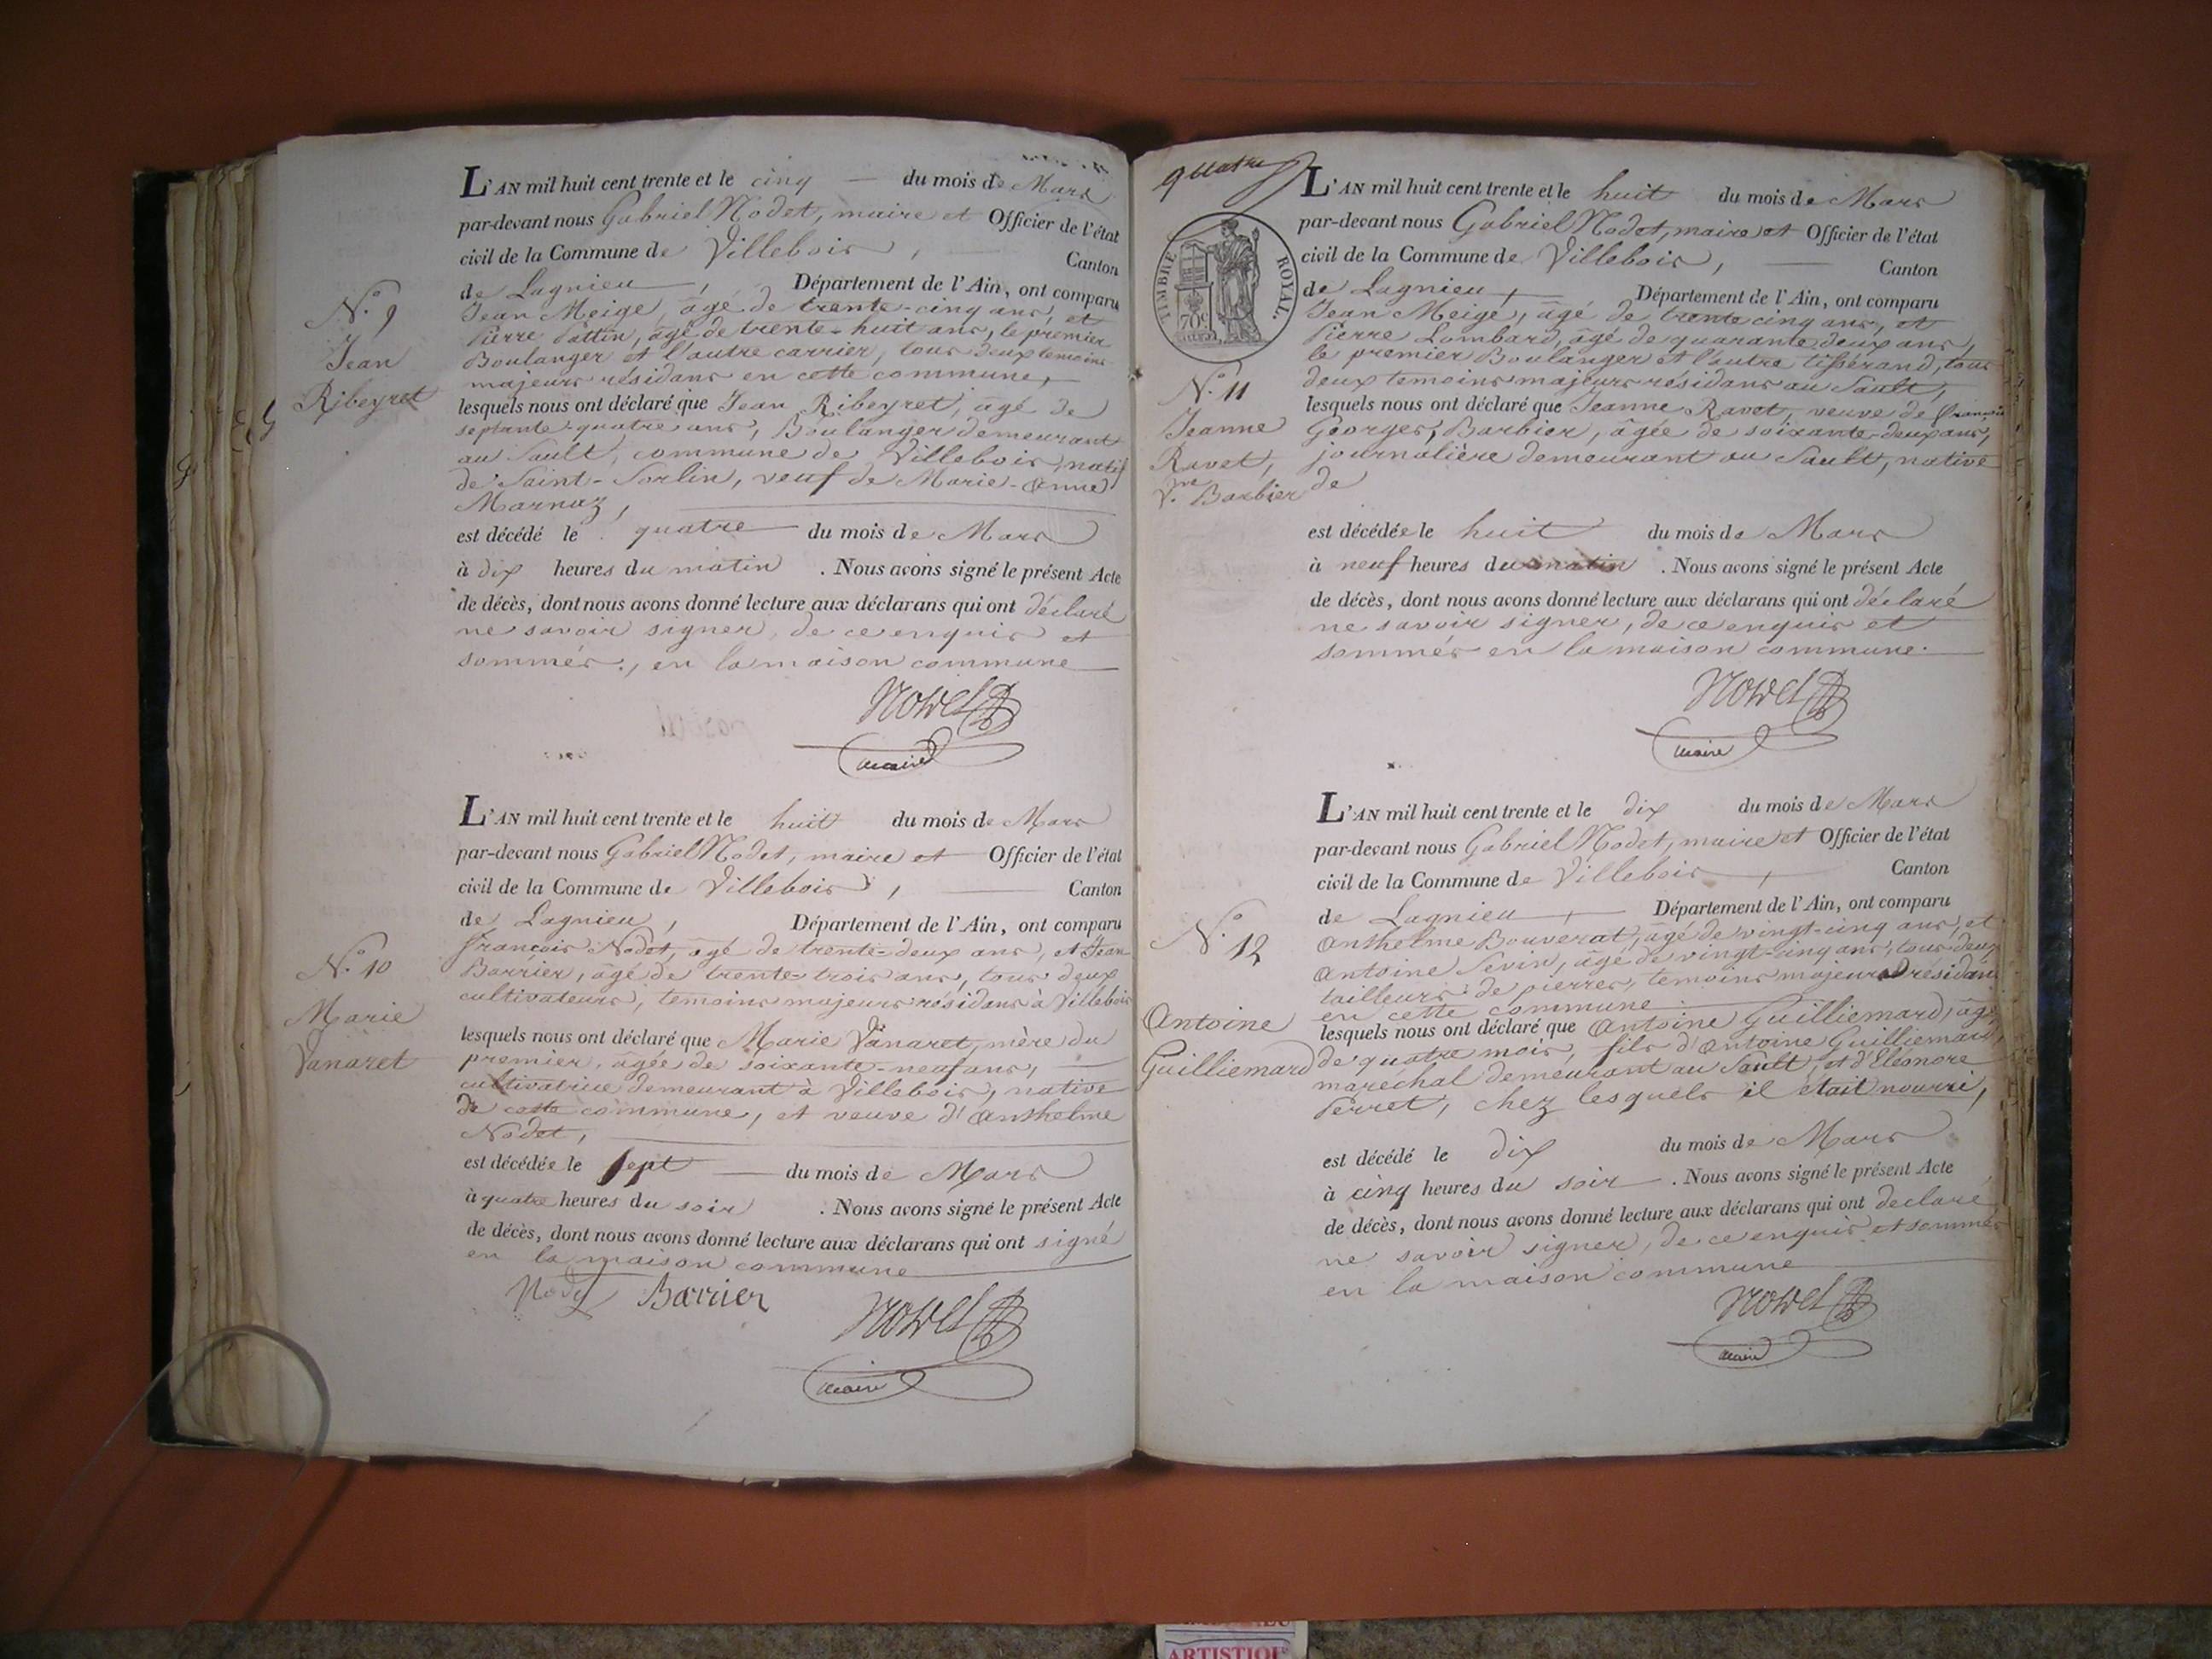 L'AN mil huit cent trente et le cinq — du mois de Mars
par-devant nous Gabriel Nodet, maire et Officier de l'état
civil de la Commune de Villebois, — Canton
de Lagnieu, Département de l'Ain, ont comparu
N.º 9
Jean
Ribeyret
Jean Meige, âgé de trente-cinq ans, et
Pierre Pattin, âgé de trente-huit ans, le premier
Boulanger et l'autre carrier, tous deux temoins
majeurs résidans en cette commune,
lesquels nous ont déclaré que Jean Ribeyret, âgé de
septante-quatre ans, Boulanger demeurant
au Sault, commune de Villebois, natif
de Saint-Sorlin, veuf de Marie-Anne
Marnaz,
est décédé le quatre — du mois de Mars
à dix heures du matin . Nous avons signé le présent Acte
de décès, dont nous avons donné lecture aux déclarans qui ont déclaré
ne savoir signer, de ce enquis et
sommés., en la maison commune
Nodet
maire
L'AN mil huit cent trente et le huit du mois de Mars
par-devant nous Gabriel Nodet, maire et Officier de l'état
civil de la Commune de Villebois, — Canton
de Lagnieu, Département de l'Ain, ont comparu
N.º 10
Marie
Vanaret
françois Nodet, âgé de trente-deux ans, et Jean
Barrier, âgé de trente-trois ans, tous deux
cultivateurs, temoins majeurs résidans à Villebois
lesquels nous ont déclaré que Marie Vanaret, mère du
premier, âgée de soixante-neuf ans, —
cultivatrice demeurant à Villebois, native
de cette commune, et veuve d'Anthelme
Nodet,
est décédée le sept — du mois de Mars
à quatre heures du soir . Nous avons signé le présent Acte
de décès, dont nous avons donné lecture aux déclarans qui ont signé
en la maison commune
Nodet Barrier Nodet
maire
quatre
TIMBRE ROYAL.
70c
L'AN mil huit cent trente et le huit du mois de Mars
par-devant nous Gabriel Nodet, maire et Officier de l'état
civil de la Commune de Villebois, — Canton
de Lagnieu, Département de l'Ain, ont comparu
N.º 11
Jeanne
Ravet,
V.ve Barbier
Jean Meige, âgé de trente cinq ans, et
Pierre Lombard, âgé de quarante deux ans,
le premier Boulanger et l'autre tisserand, tous
deux temoins majeurs résidans au Sault,
lesquels nous ont déclaré que Jeanne Ravet, veuve de François
Georges, Barbier, âgée de soixante-deux ans,
journalière demeurant au Sault, native
de
est décédée le huit du mois de Mars
à neuf heures du matin . Nous avons signé le présent Acte
de décès, dont nous avons donné lecture aux déclarans qui ont déclaré
ne savoir signer, de ce enquis et
sommés en la maison commune.
Nodet
maire
L'AN mil huit cent trente et le dix du mois de Mars
par-devant nous Gabriel Nodet, maire et Officier de l'état
civil de la Commune de Villebois, Canton
de Lagnieu, Département de l'Ain, ont comparu
N.º 12
Antoine
Guilliemard
Anthelme Bouverat, âgé de vingt-cinq ans, et
Antoine Sevin, âgé de vingt-cinq ans, tous deux
tailleurs de pierres, temoins majeurs résidans
en cette commune
lesquels nous ont déclaré que Antoine Guilliemard, âgé
de quatre mois, fils d'Antoine Guilliemard,
maréchal demeurant au Sault, et d'Eléonore
Perret, chez lesquels il était nourri,
est décédé le dix du mois de Mars
à cinq heures du soir . Nous avons signé le présent Acte
de décès, dont nous avons donné lecture aux déclarans qui ont declaré
ne savoir signer, de ce enquis et sommés
en la maison commune
Nodet
maire